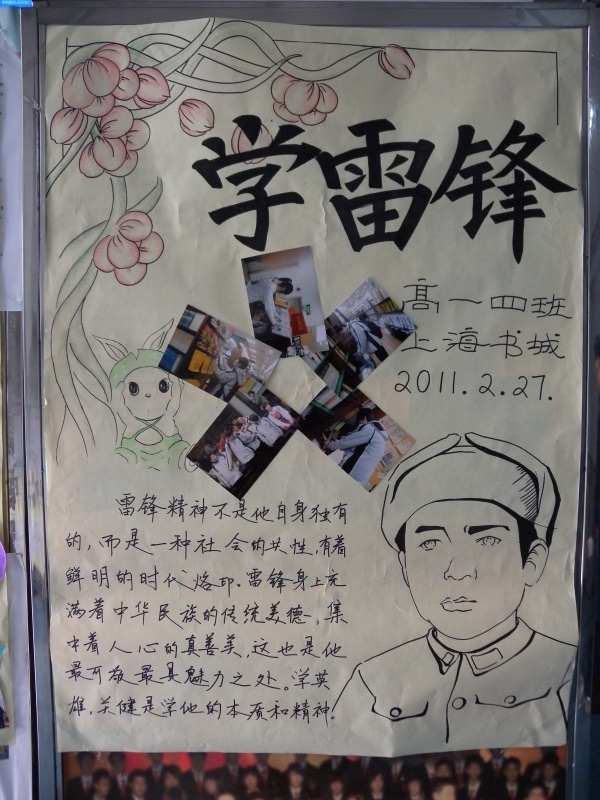 学雷锋
高一四班
上海书城
2011.2.27.
雷锋精神不是他自身独有
的，而是一种社会的共性，有着
鲜明的时代烙印.雷锋身上充
满着中华民族的传统美德，集
中着人心的真善美，这也是他
最可敬最具魅力之处。学英
雄，关健是学他的本质和精神.